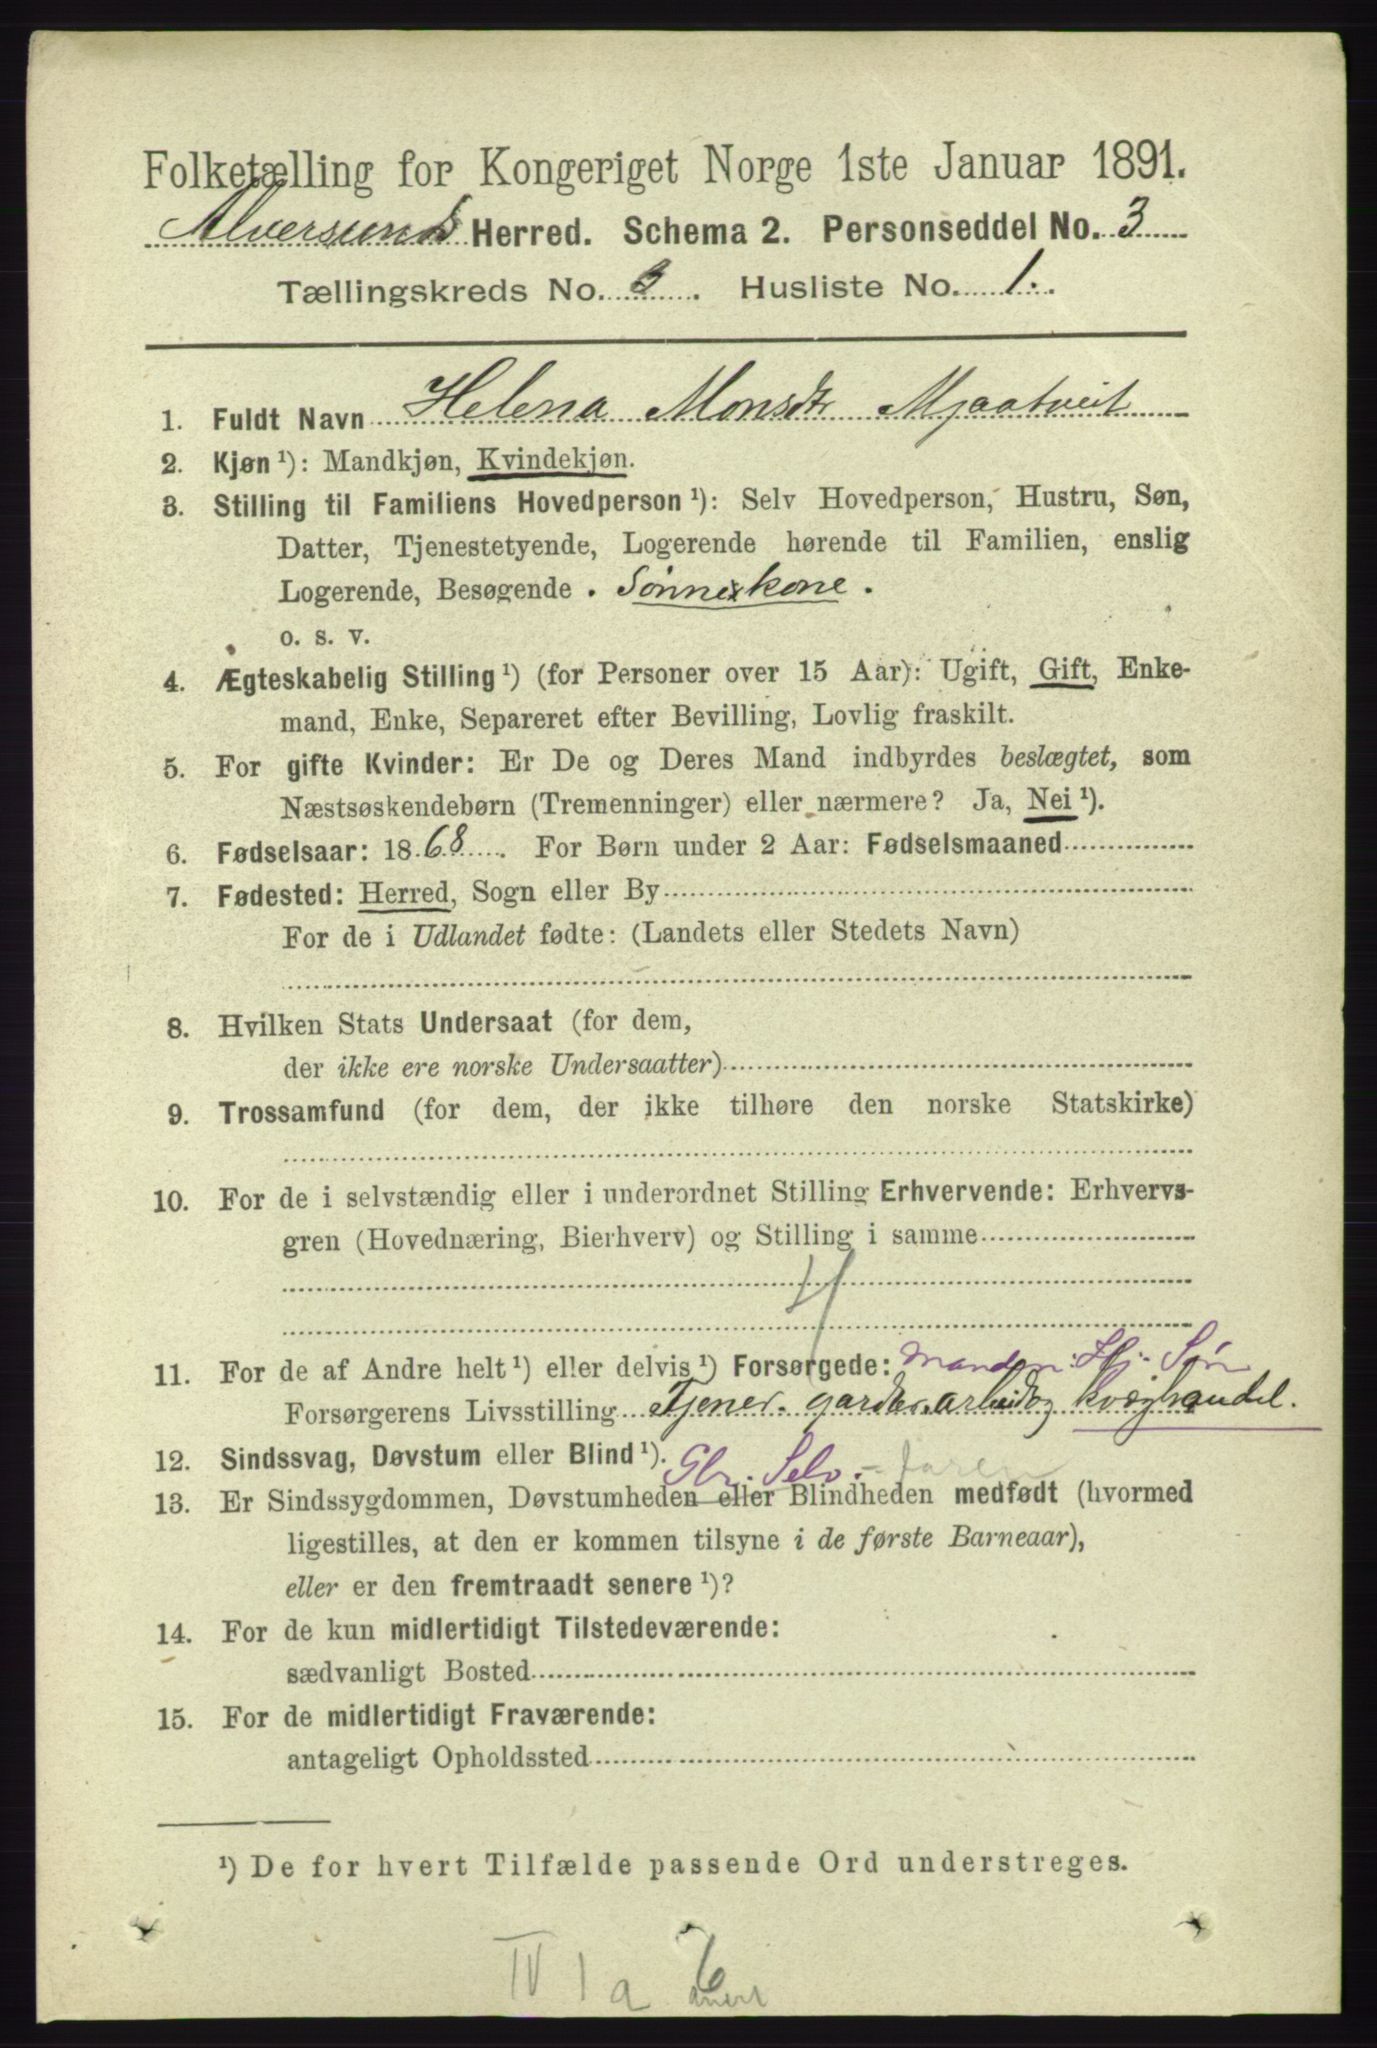 Folketælling for Kongeriget Norge 1ste Januar 1891.
Alversund Herred. Schema 2. Personseddel No. 3
Tællingskreds No. 3. Husliste No. 1.
1. Fuldt Navn Helena Monsdtr Mjaatveit
2. Kjøn ¹): Mandkjøn, Kvindekjøn.
3. Stilling til Familiens Hovedperson ¹): Selv Hovedperson, Hustru, Søn,
Datter, Tjenestetyende, Logerende hørende til Familien, enslig
Logerende, Besøgende . Sønneskone .
o. s. v.
4. Ægteskabelig Stilling ¹) (for Personer over 15 Aar): Ugift, Gift, Enke-
mand, Enke, Separeret efter Bevilling, Lovlig fraskilt.
5. For gifte Kvinder: Er De og Deres Mand indbyrdes beslægtet, som
Næstsøskendebørn (Tremenninger) eller nærmere? Ja, Nei ¹).
6. Fødselsaar: 1868. For Børn under 2 Aar: Fødselsmaaned
7. Fødested: Herred, Sogn eller By
For de i Udlandet fødte: (Landets eller Stedets Navn)
8. Hvilken Stats Undersaat (for dem,
der ikke ere norske Undersaatter)
9. Trossamfund (for dem, der ikke tilhøre den norske Statskirke)
10. For de i selvstændig eller i underordnet Stilling Erhvervende: Erhvervs-
gren (Hovednæring, Bierhverv) og Stilling i samme
11. For de af Andre helt ¹) eller delvis ¹) Forsørgede: Manden: Hj. Søn
Forsørgerens Livsstilling Tjener. gardsarbeid og kvæghandel.
12. Sindssvag, Døvstum eller Blind ¹). Selv.
13. Er Sindssygdommen, Døvstumheden eller Blindheden medfødt (hvormed
ligestilles, at den er kommen tilsyne i de første Barneaar),
eller er den fremtraadt senere ¹)?
14. For de kun midlertidigt Tilstedeværende:
sædvanligt Bosted
15. For de midlertidigt Fraværende:
antageligt Opholdssted
¹) De for hvert Tilfælde passende Ord understreges.
IV 1 a